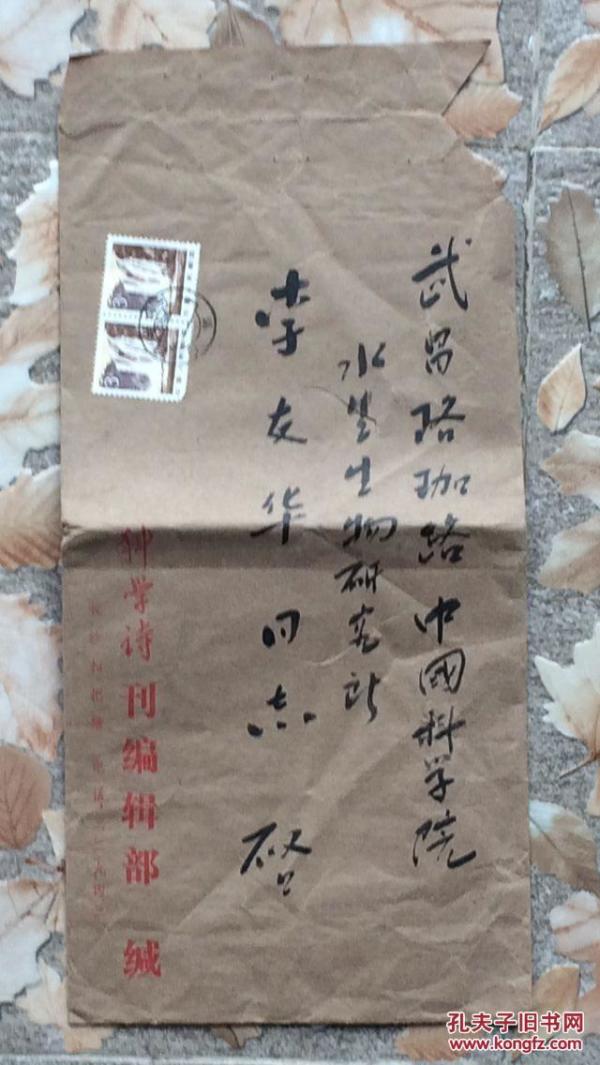 武昌珞珈路中國科学院
水生生物研究所
李友华同志 啓
科学诗刊编辑部 缄
孔夫子旧书网
www.kongfz.com